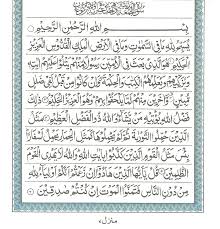 بِسْمِ اللهِ الرَّحْمٰنِ الرَّحِيْمِ
يُسَبِّحُ لِلهِ مَا فِى السَّمٰوٰتِ وَمَا فِى الْاَرْضِ الْمَلِكِ الْقُدُّوْسِ الْعَزِيْزِ
الْحَكِيْمِ هُوَ الَّذِىْ بَعَثَ فِى الْاُمِّيّٖنَ رَسُوْلًا مِّنْهُمْ يَتْلُوْا عَلَيْهِمْ اٰيٰتِهٖ
وَيُزَكِّيْهِمْ وَيُعَلِّمُهُمُ الْكِتٰبَ وَالْحِكْمَةَ وَاِنْ كَانُوْا مِنْ قَبْلُ لَفِىْ ضَلٰلٍ
مُّبِيْنٍ وَّاٰخَرِيْنَ مِنْهُمْ لَمَّا يَلْحَقُوْا بِهِمْ وَهُوَ الْعَزِيْزُ الْحَكِيْمُ ذٰلِكَ
فَضْلُ اللهِ يُؤْتِيْهِ مَنْ يَّشَآءُ وَاللهُ ذُو الْفَضْلِ الْعَظِيْمِ مَثَلُ
الَّذِيْنَ حُمِّلُوا التَّوْرٰىةَ ثُمَّ لَمْ يَحْمِلُوْهَا كَمَثَلِ الْحِمَارِ يَحْمِلُ اَسْفَارًا
بِئْسَ مَثَلُ الْقَوْمِ الَّذِيْنَ كَذَّبُوْا بِاٰيٰتِ اللهِ وَاللهُ لَا يَهْدِى الْقَوْمَ
الظّٰلِمِيْنَ قُلْ يٰۤاَيُّهَا الَّذِيْنَ هَادُوْۤا اِنْ زَعَمْتُمْ اَنَّكُمْ اَوْلِيَآءُ لِلهِ
مِنْ دُوْنِ النَّاسِ فَتَمَنَّوُا الْمَوْتَ اِنْ كُنْتُمْ صٰدِقِيْنَ
منزل ٧